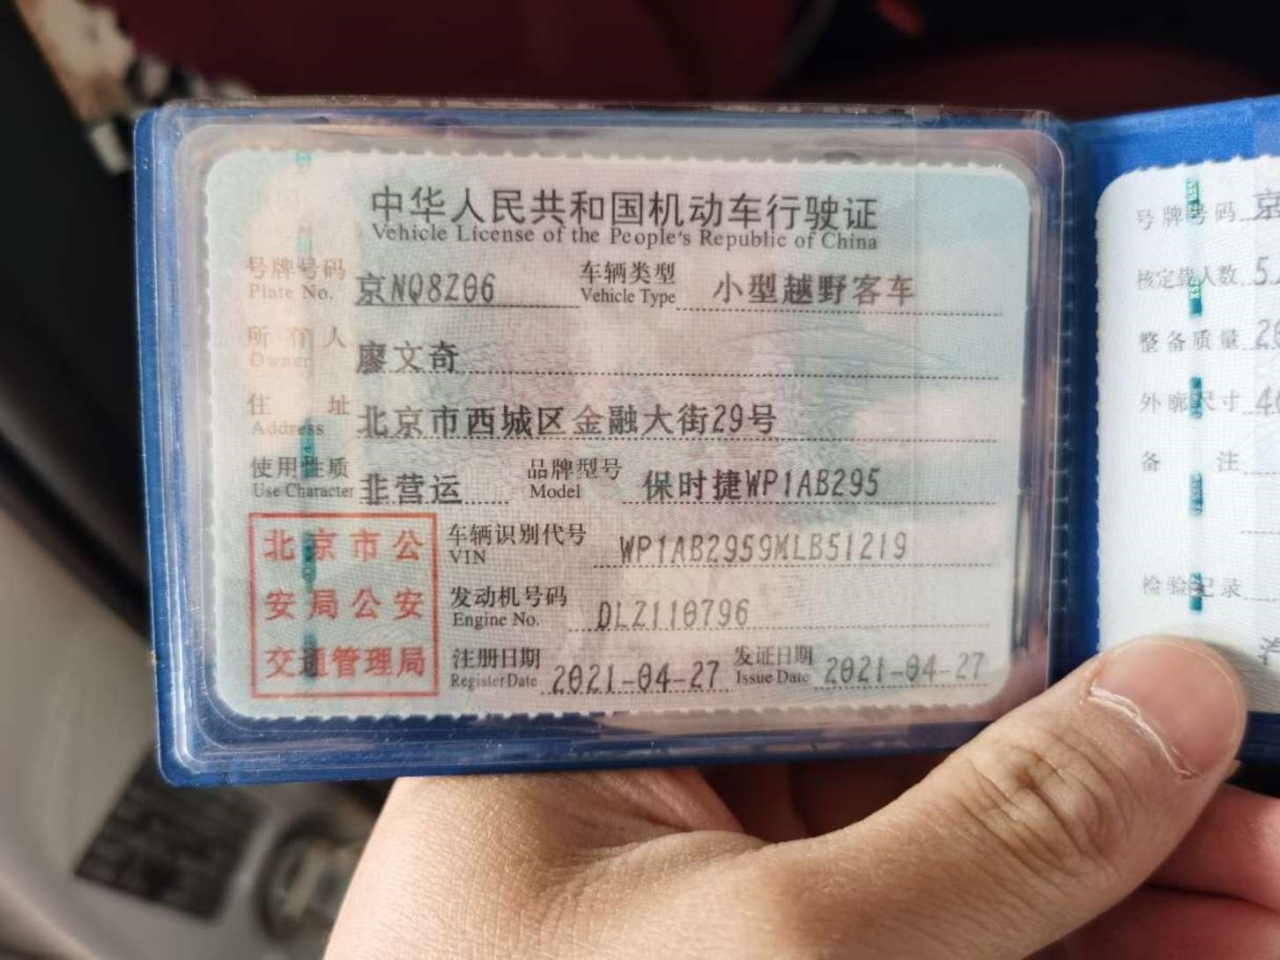 中华人民共和国机动车行驶证
Vehicle License of the People's Republic of China
号牌号码 京NQ8Z06 车辆类型 小型越野客车
Plate No. Vehicle Type
所有人 廖文奇
Owner
住址 北京市西城区金融大街29号
Address
使用性质 非营运 品牌型号 保时捷WP1AB295
Use Character Model
北京市公
安局公安
交通管理局
车辆识别代号 WP1AB2959MLB51219
VIN
发动机号码 DLZ110796
Engine No.
注册日期 2021-04-27 发证日期 2021-04-27
Register Date Issue Date
号牌号码 京
核定载人数 5
整备质量 20
外廓尺寸
备注
检验记录